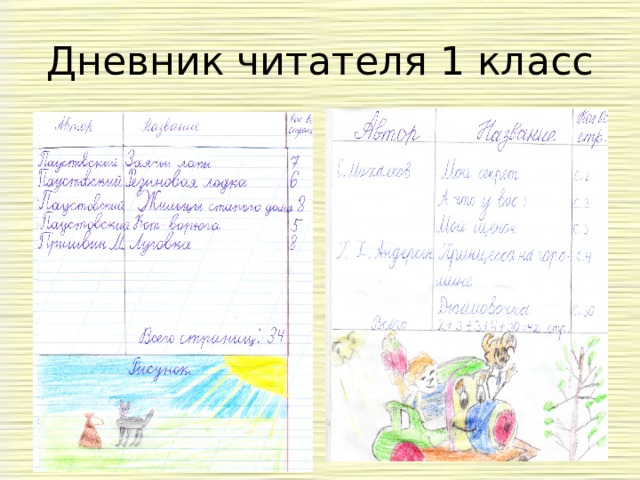 Дневник читателя 1 класс
Автор Название Кол во стран
Паустовский Заячьи лапы 7
Паустовский Резиновая лодка 6
Паустовский Жильцы старого дома 8
Паустовский Кот ворюга 5
Пришвин М. Луговка 8
Всего страниц: 34
Рисунок.
Автор Название Кол во стр.
С. Михалков Мой секрет с. 2
А что у вас? с. 3
Мой щенок с. 3
Г. Х. Андерсен Принцесса на горо- с. 4
шине
Дюймовочка с. 30
Всего 2+3+3+4+30=42 стр.